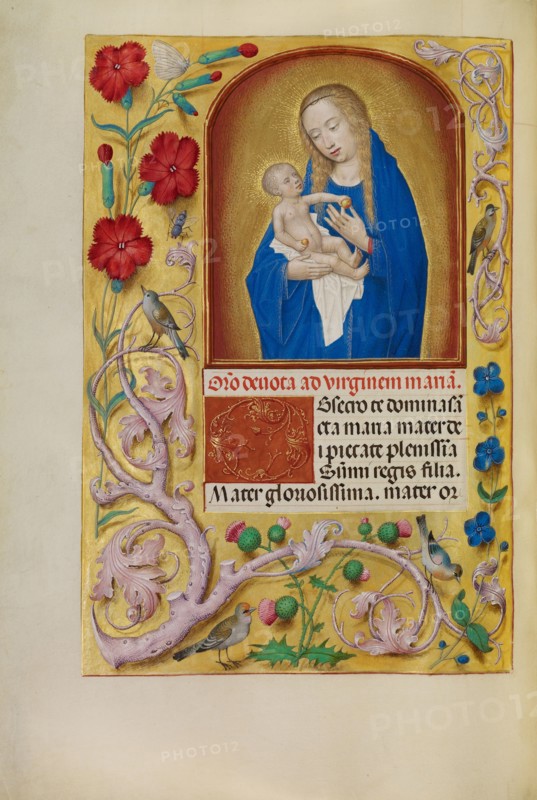 Orõ deuota ad virginem mariã.
OBsecro te domina sã
cta maria mater de
i pietate plenissĩa
Sũmi regis filia.
Mater gloriosissima. mater or
PHOTO12